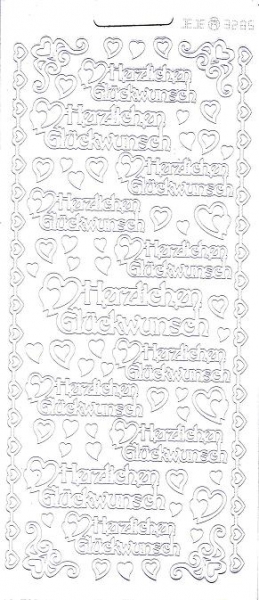 JEJE ® 3285
Herzlichen
Glückwunsch
Herzlichen
Glückwunsch
Herzlichen
Glückwunsch
Herzlichen
Glückwunsch
Herzlichen
Glückwunsch
Herzlichen
Glückwunsch
Herzlichen
Glückwunsch
Herzlichen
Glückwunsch
Herzlichen
Glückwunsch
Herzlichen
Glückwunsch
Herzlichen
Glückwunsch